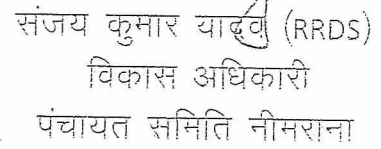 संजय कुमार यादव (RRDS)
विकास अधिकारी
पंचायत समिति नीमराना